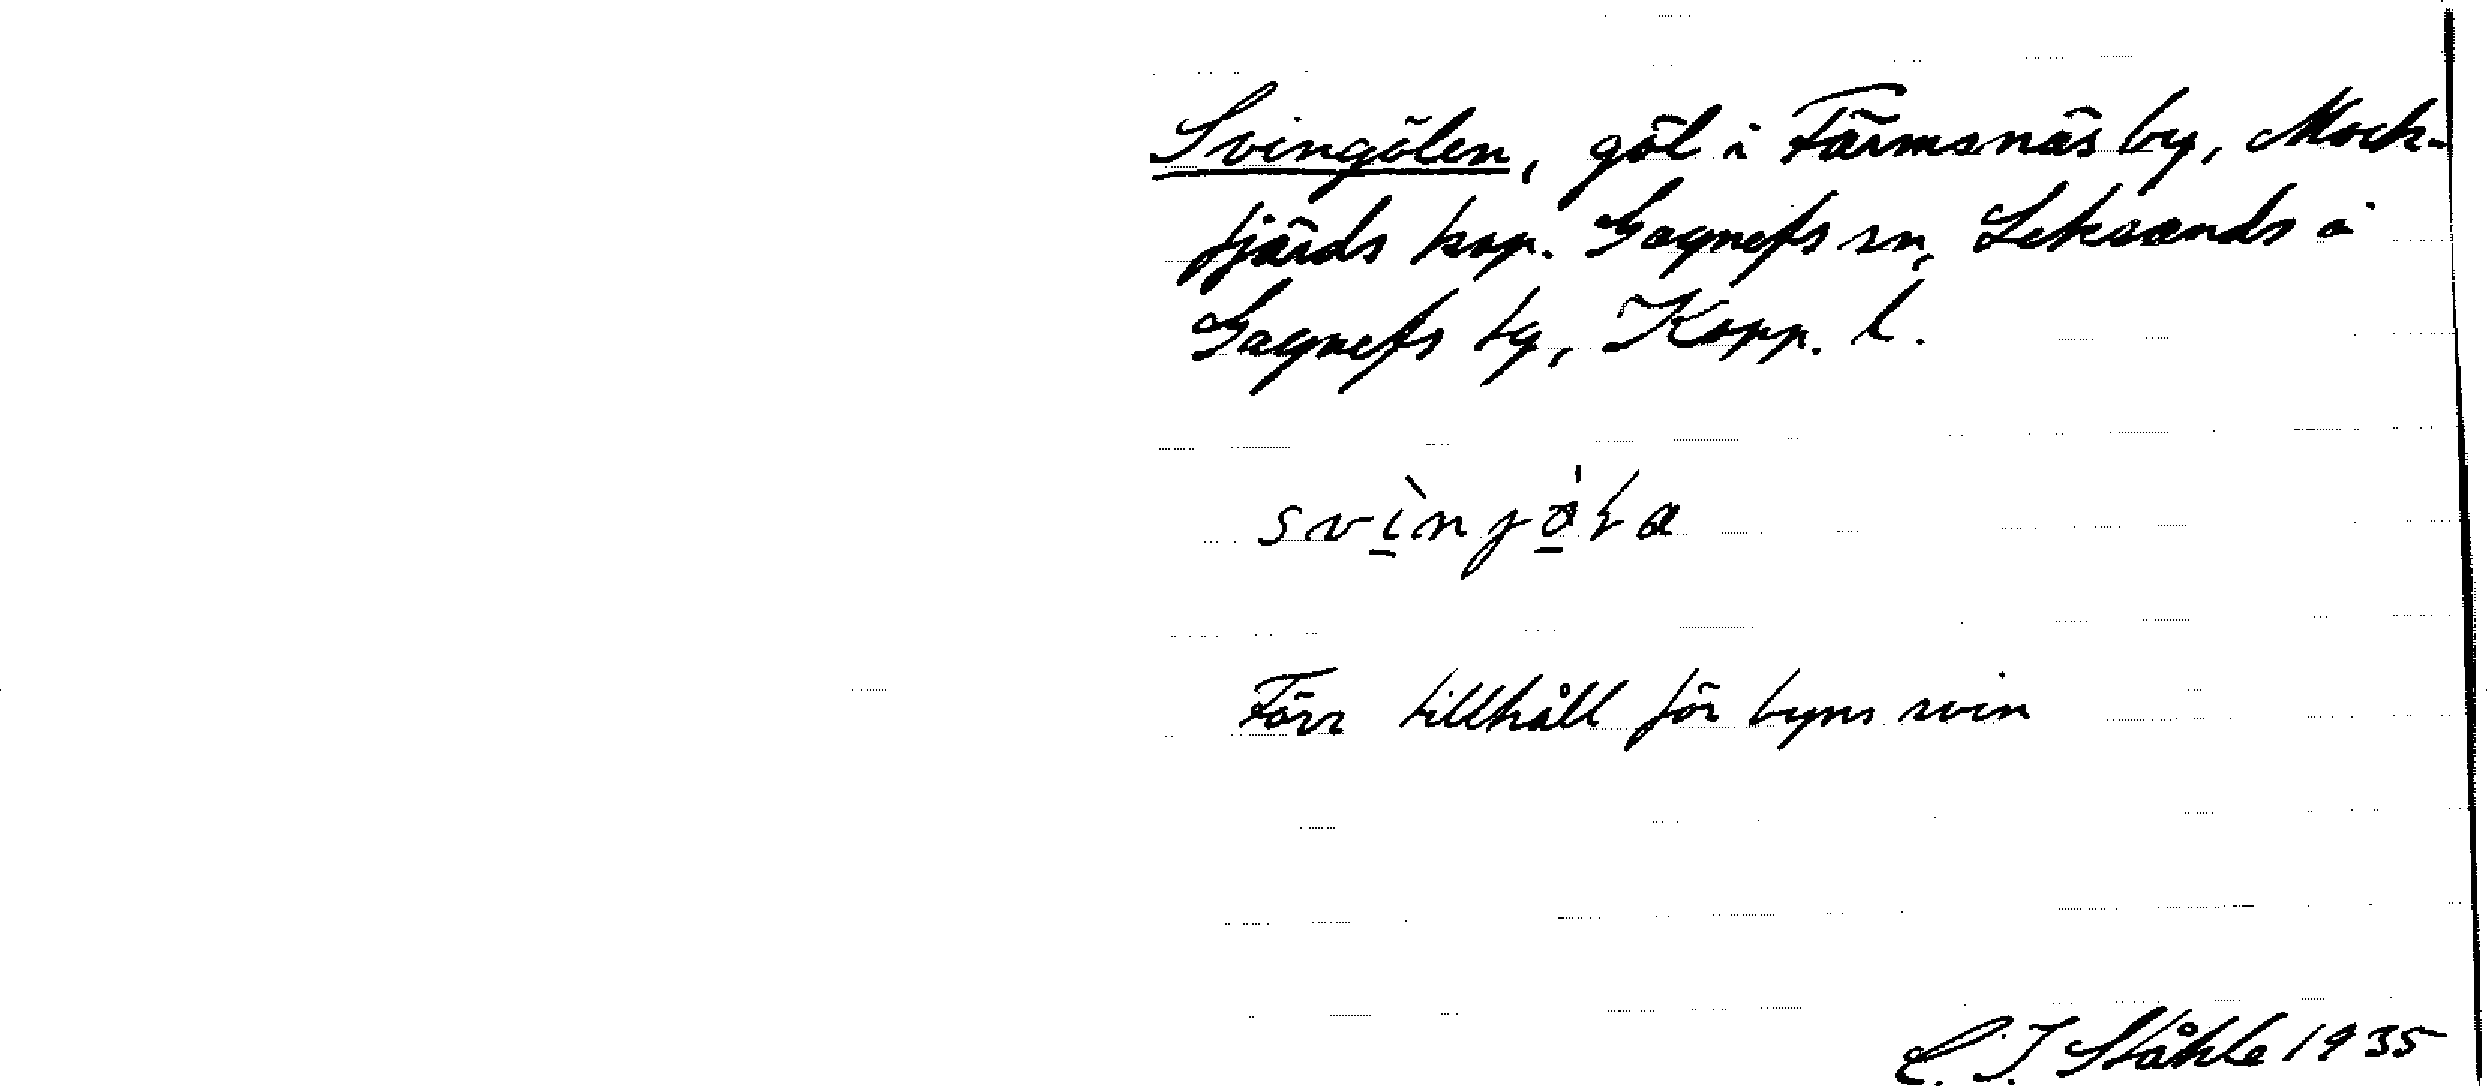 Svingölen, göl i Färmsnäs by, Mock-
fjärds kap. Gagnefs sn, Leksands o
Gagnefs tg, Kopp. l.
Förr tillhåll för byns svin
C. I. Ståhle 1935